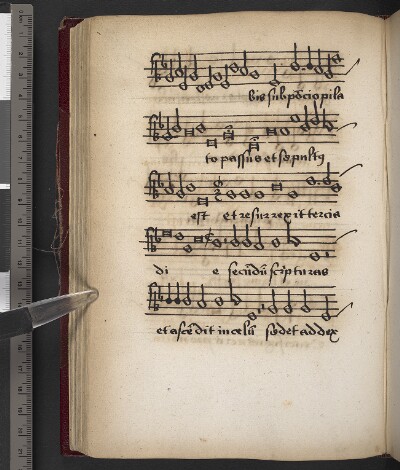 bis sub põcio pila
to passus et sepultꝯ
est et resurrexit tercia
di e secūdū scripturas
et ascēdit in celū sedet ad dex